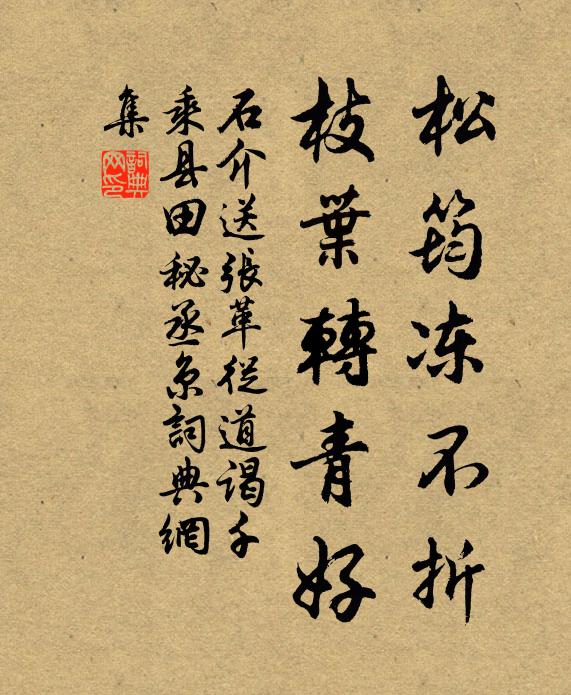 松筠冻不折
枝葉轉青好
石介送張革從道謁千
乘县田秘丞京詞典網
集
詞典
网印